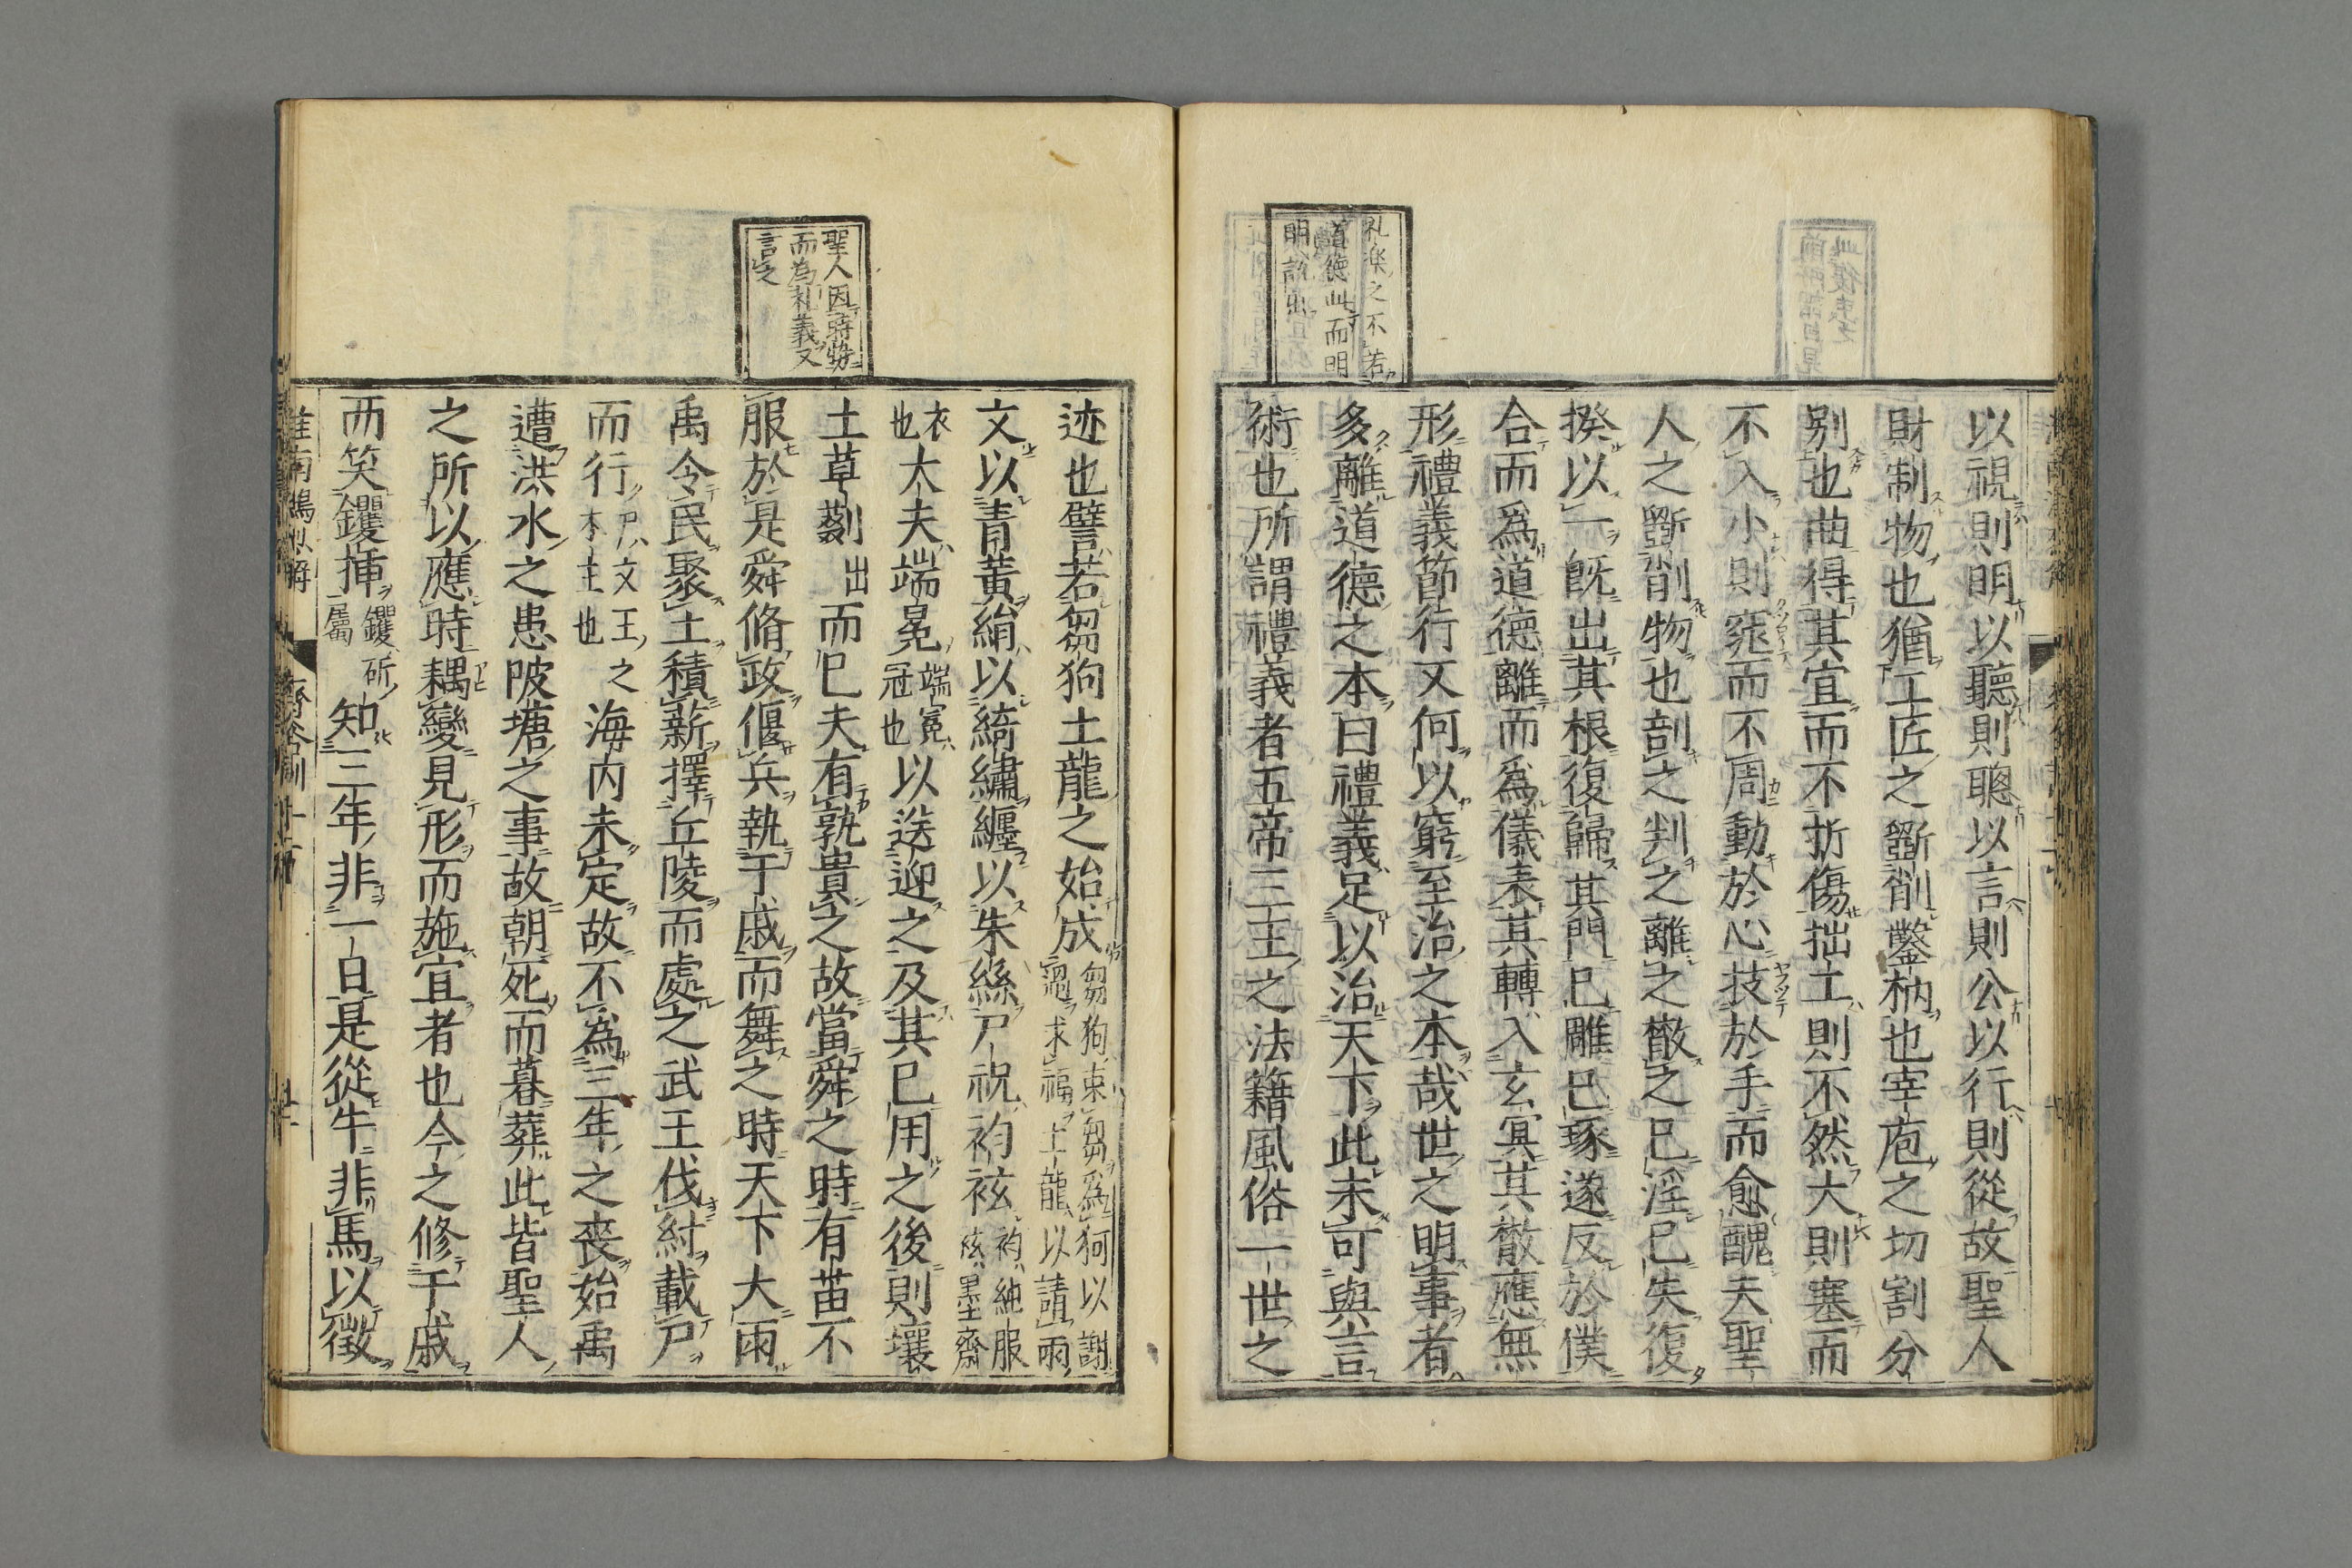 礼楽之不若
道徳此而明
明説出
以視則明以聽則聰以言則公以行則從故聖人
財制物也猶工匠之斲削鑿枘也宰庖之切割分
別也曲得其宜而不折傷拙工則不然大則塞而
不入小則窕而不周動於心技於手而愈醜夫聖
人之斲削物也剖之判之離之㪚之已淫已失復
揆以一既出其根復歸其門已雕已琢遂反於僕
合而爲道德離而爲儀表其轉入玄冥其㪚應無
形禮義節行又何以窮至治之本哉世之明事者
多離道德之本曰禮義足以治天下此未可與言
術也所謂禮義者五帝三王之法籍風俗一世之
聖人因時勢
而為礼義又
言之
迹也譬若芻狗土龍之始成芻狗束芻爲狗以謝
過求福土龍以請雨
文以青黃絹以綺繡纏以朱絲尸祝袀袨袀純服
袨墨齋
衣
也大夫端冕端冕
冠也以送迎之及其已用之後則壤
土草𦵔出而已夫有孰貴之故當舜之時有苗不
服於是舜脩政偃兵執干戚而舞之時天下大雨
禹令民聚土積薪擇丘陵而處之武王伐紂載尸
而行尸文王之
木主也海内未定故不為三年之喪始禹
遭洪水之患陂塘之事故朝死而暮葬此皆聖人
之所以應時耦變見形而施宜者也今之修干戚
而笑钁揷钁斫
屬知三年非一日是從牛非馬以徵